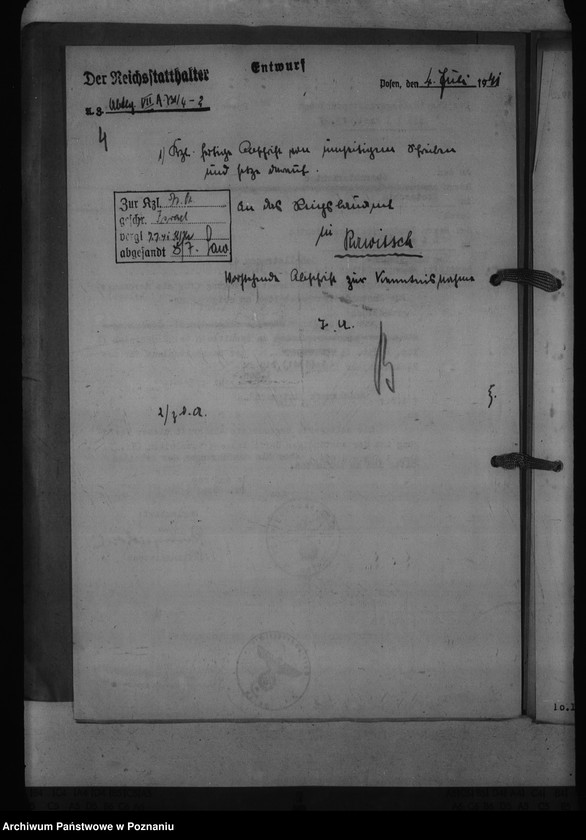 Entwurf
Der Reichsstatthalter
Posen, den 4. Juli 1941
u. g. Abtlg. VII A 731/4-2
4
1) Kzl. fertige Abschrift von umseitigem Schreiben
und setze darauf.
Zur Kzl.
geschr.
vergl.
abgesandt 8/7.
An das Kreisbauamt
in
Rawitsch
Vorstehende Abschrift zur Kenntnisnahme
I. A.
2/ z. d. A.
10.
Archiwum Państwowe w Poznaniu